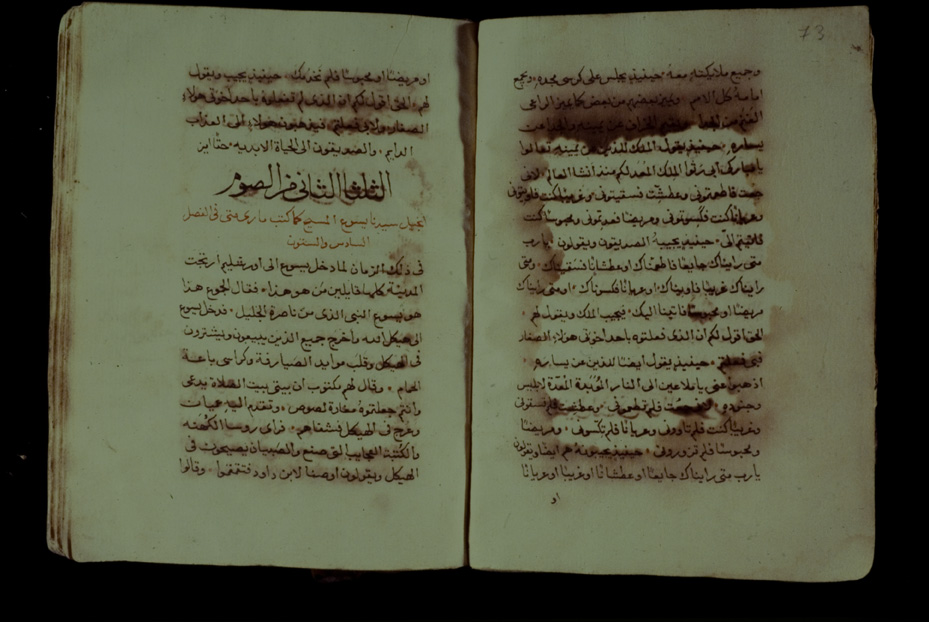 73
وجميع ملايكته معه، حينيذ يجلس على كرسي مجده، ويجمع
امامه كل الامم ويميز بعضهم من بعض كما يميز الراعي
الغنم من الجدا، ويقيم الخراف عن يمينه والجدا عن
يساره، حينيذ يقول الملك للذين عن يمينه تعالوا
يا مباركي ابي رثوا الملك المعد لكم منذ انشا العالم، لاني
جعت فاطعمتوني وعطشت فسقيتوني وغريبا كنت فاويتوني
وعريانا كنت فكسوتوني ومريضا فعدتوني ومحبوسا كنت
فاتيتم اليّ، حينيذ يجيبه الصديقون ويقولون يارب
متى رايناك جايعا فاطعمناك او عطشانا فسقيناك ومتى
رايناك غريبا فاويناك او عريانا فكسوناك، او متى رايناك
مريضا او محبوسا فاتينا اليك، فيجيب الملك ويقول لهم
الحق اقول لكم ان الذي فعلتوه باحد اخوتي هولاء الصغار
فبي فعلتم، حينيذ يقول ايضا للذين عن يساره
اذهبوا عني يا ملاعين الى النار المويدة المعدّة لابليس
وجنوده، لاني جعت فلم تطعموني وعطشت فلم تسقوني
وغريبا كنت فلم تاووني وعريانا فلم تكسوني، ومريضا
ومحبوسا فلم تزوروني، حينيذ يجيبونه هم ايضا ويقولون
يارب متى رايناك جايعا او عطشانا او غريبا او عريانا
او
او مريضا او محبوسا فلم نخدمك، حينيذ يجيب ويقول
لهم، الحق اقول لكم ان الذي لم تفعلوه باحد اخوتي هولاء
الصغار ولا بي فعلتم، فيذهبون هولاء الى العذاب
الدايم، والصديقون الى الحياة الابدية، حقا اين
الثلثا الثاني من الصوم
انجيل سيدنا يسوع المسيح كما كتب ماري متى في الفصل
السادس والستون
في ذلك الزمان لما دخل يسوع الى اورشليم ارتجت
المدينة كلها قايلين من هو هذا، فقال الجموع هذا
هو يسوع النبي الذي من ناصرة الجليل، فدخل يسوع
الى هيكل الله واخرج جميع الذين يبيعون ويشترون
في الهيكل وقلب موايد الصيارفة وكراسي باعة
الحمام، وقال لهم مكتوب ان بيتي بيت الصلاة يدعى
وانتم جعلتموه مغارة لصوص، وتقدم اليه عميان
وعرج في الهيكل فشفاهم، فراى روسا الكهنه
والكتبة العجايب التي صنع والصبيان يصيحون في
الهيكل ويقولون اوصنا لابن داود فتقمقموا، وقالوا